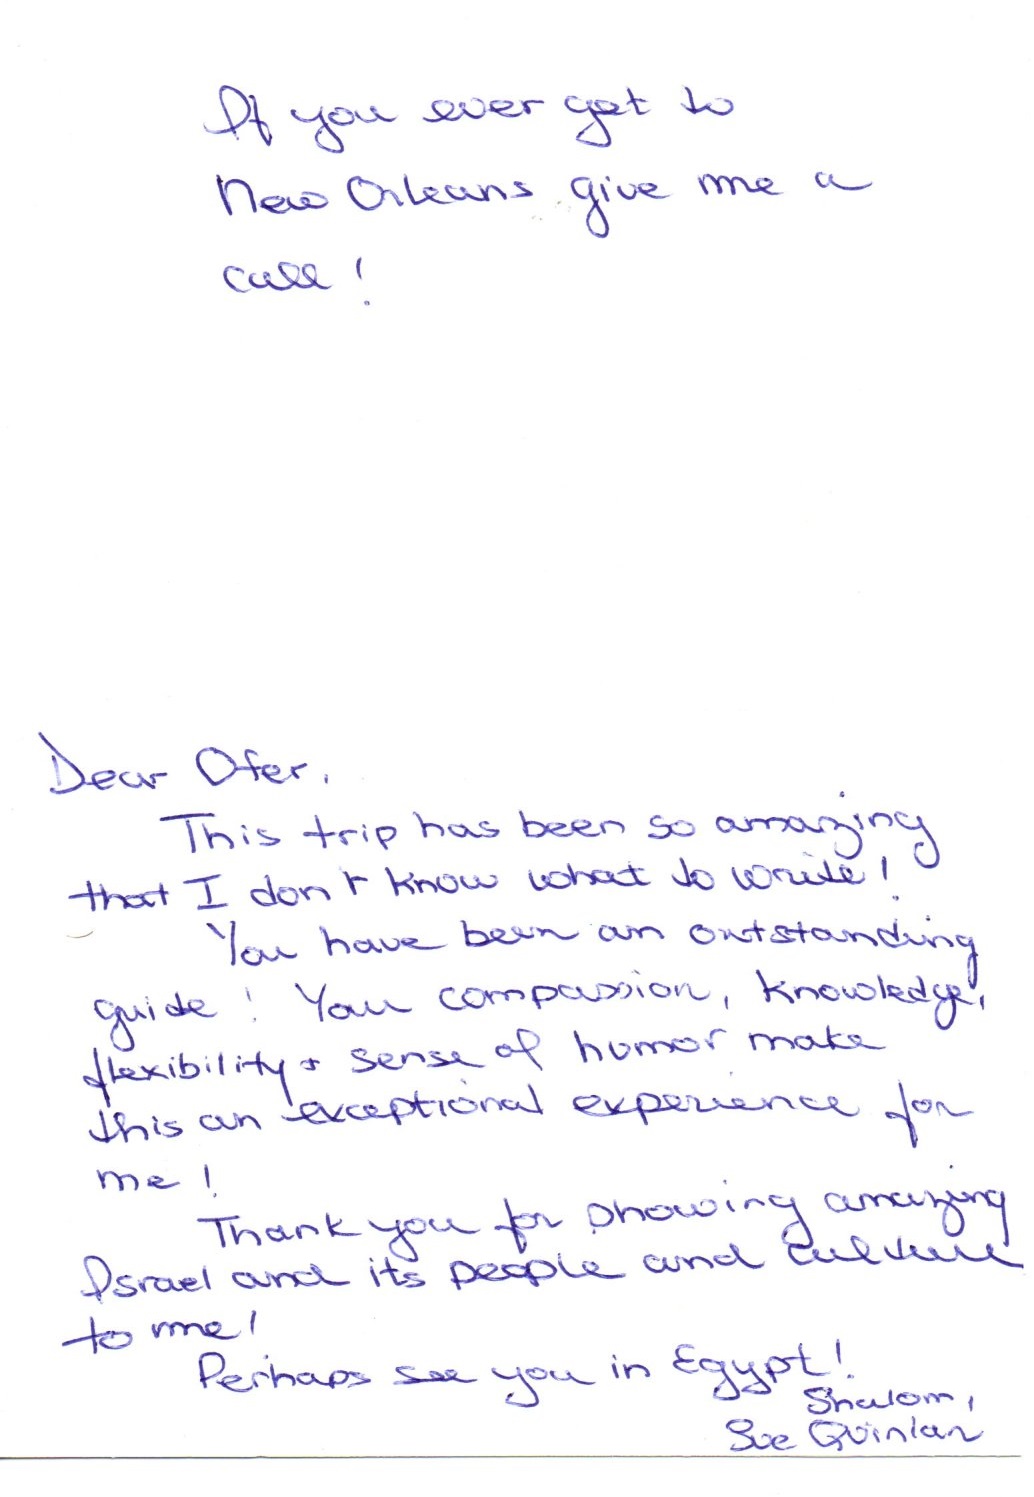 If you ever get to
New Orleans give me a
call!
Dear Ofer,
This trip has been so amazing
that I don't know what to write!
You have been an outstanding
guide! You compassion, knowledge,
flexibility & sense of humor make
this an exceptional experience for
me!
Thank you for showing amazing
Israel and its people and culture
to me!
Perhaps see you in Egypt!
Shalom,
Sue Quinlan